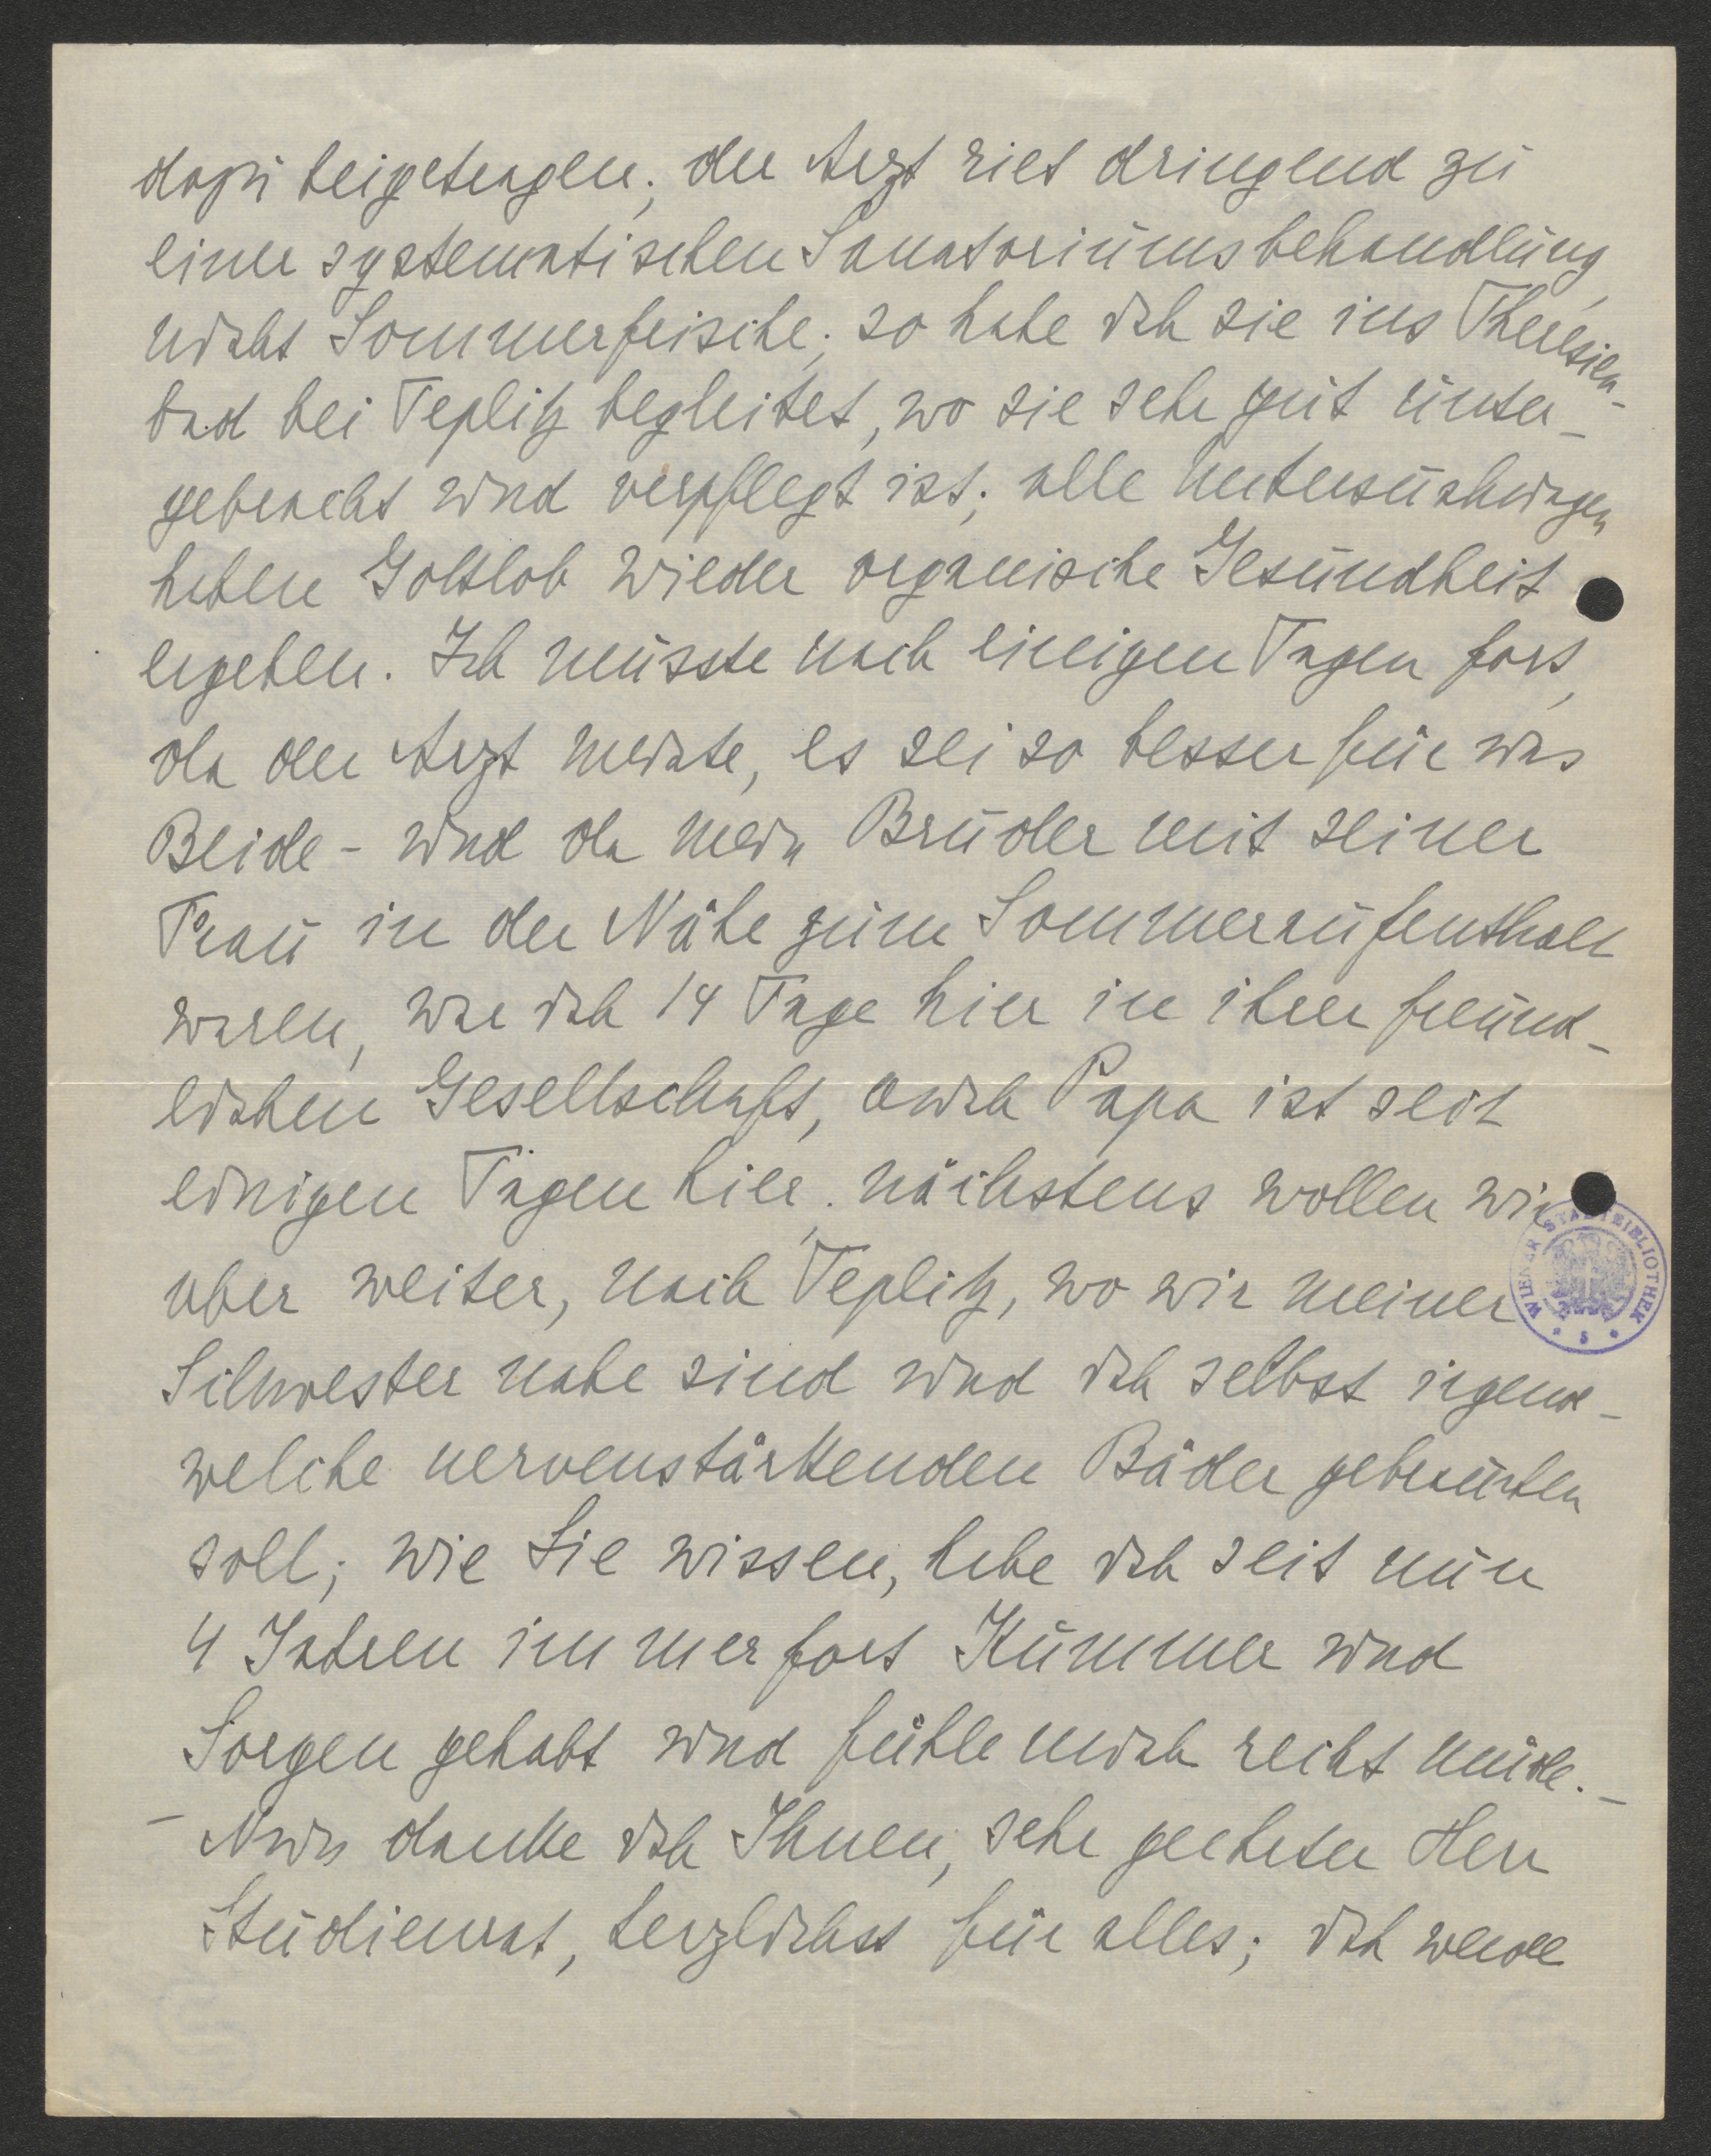 dazu beigetragen; der Arzt riet dringend zu
einer systematischen Sanatoriumsbehandlung,
nicht Sommerfrische; so habe ich sie ins Theresien-
bad bei Teplitz begleitet, wo sie sehr gut unter-
gebracht und verpflegt ist; alle Untersuchungen
haben Gottlob wieder organische Gesundheit
ergeben. Ich musste nach einigen Tagen fort,
da der Arzt meinte, es sei so besser für uns
Beide - und da mein Bruder mit seiner
Frau in der Nähe zum Sommeraufenthalt
waren, war ich 14 Tage hier in ihrer freund-
lichen Gesellschaft, auch Papa ist seit
einigen Tagen hier; nächstens wollen wir
aber weiter, nach Teplitz, wo wir meiner
Schwester nahe sind und ich selbst irgend-
welche nervenstärkenden Bäder gebrauchen
soll; wie Sie wissen, habe ich seit nun
4 Jahren immerfort Kummer und
Sorgen gehabt und fühle mich recht müde. -
- Nun danke ich Ihnen, sehr geehrter Herr
Studienrat, herzlichst für alles; ich werde
WIENER STADTBIBLIOTHEK